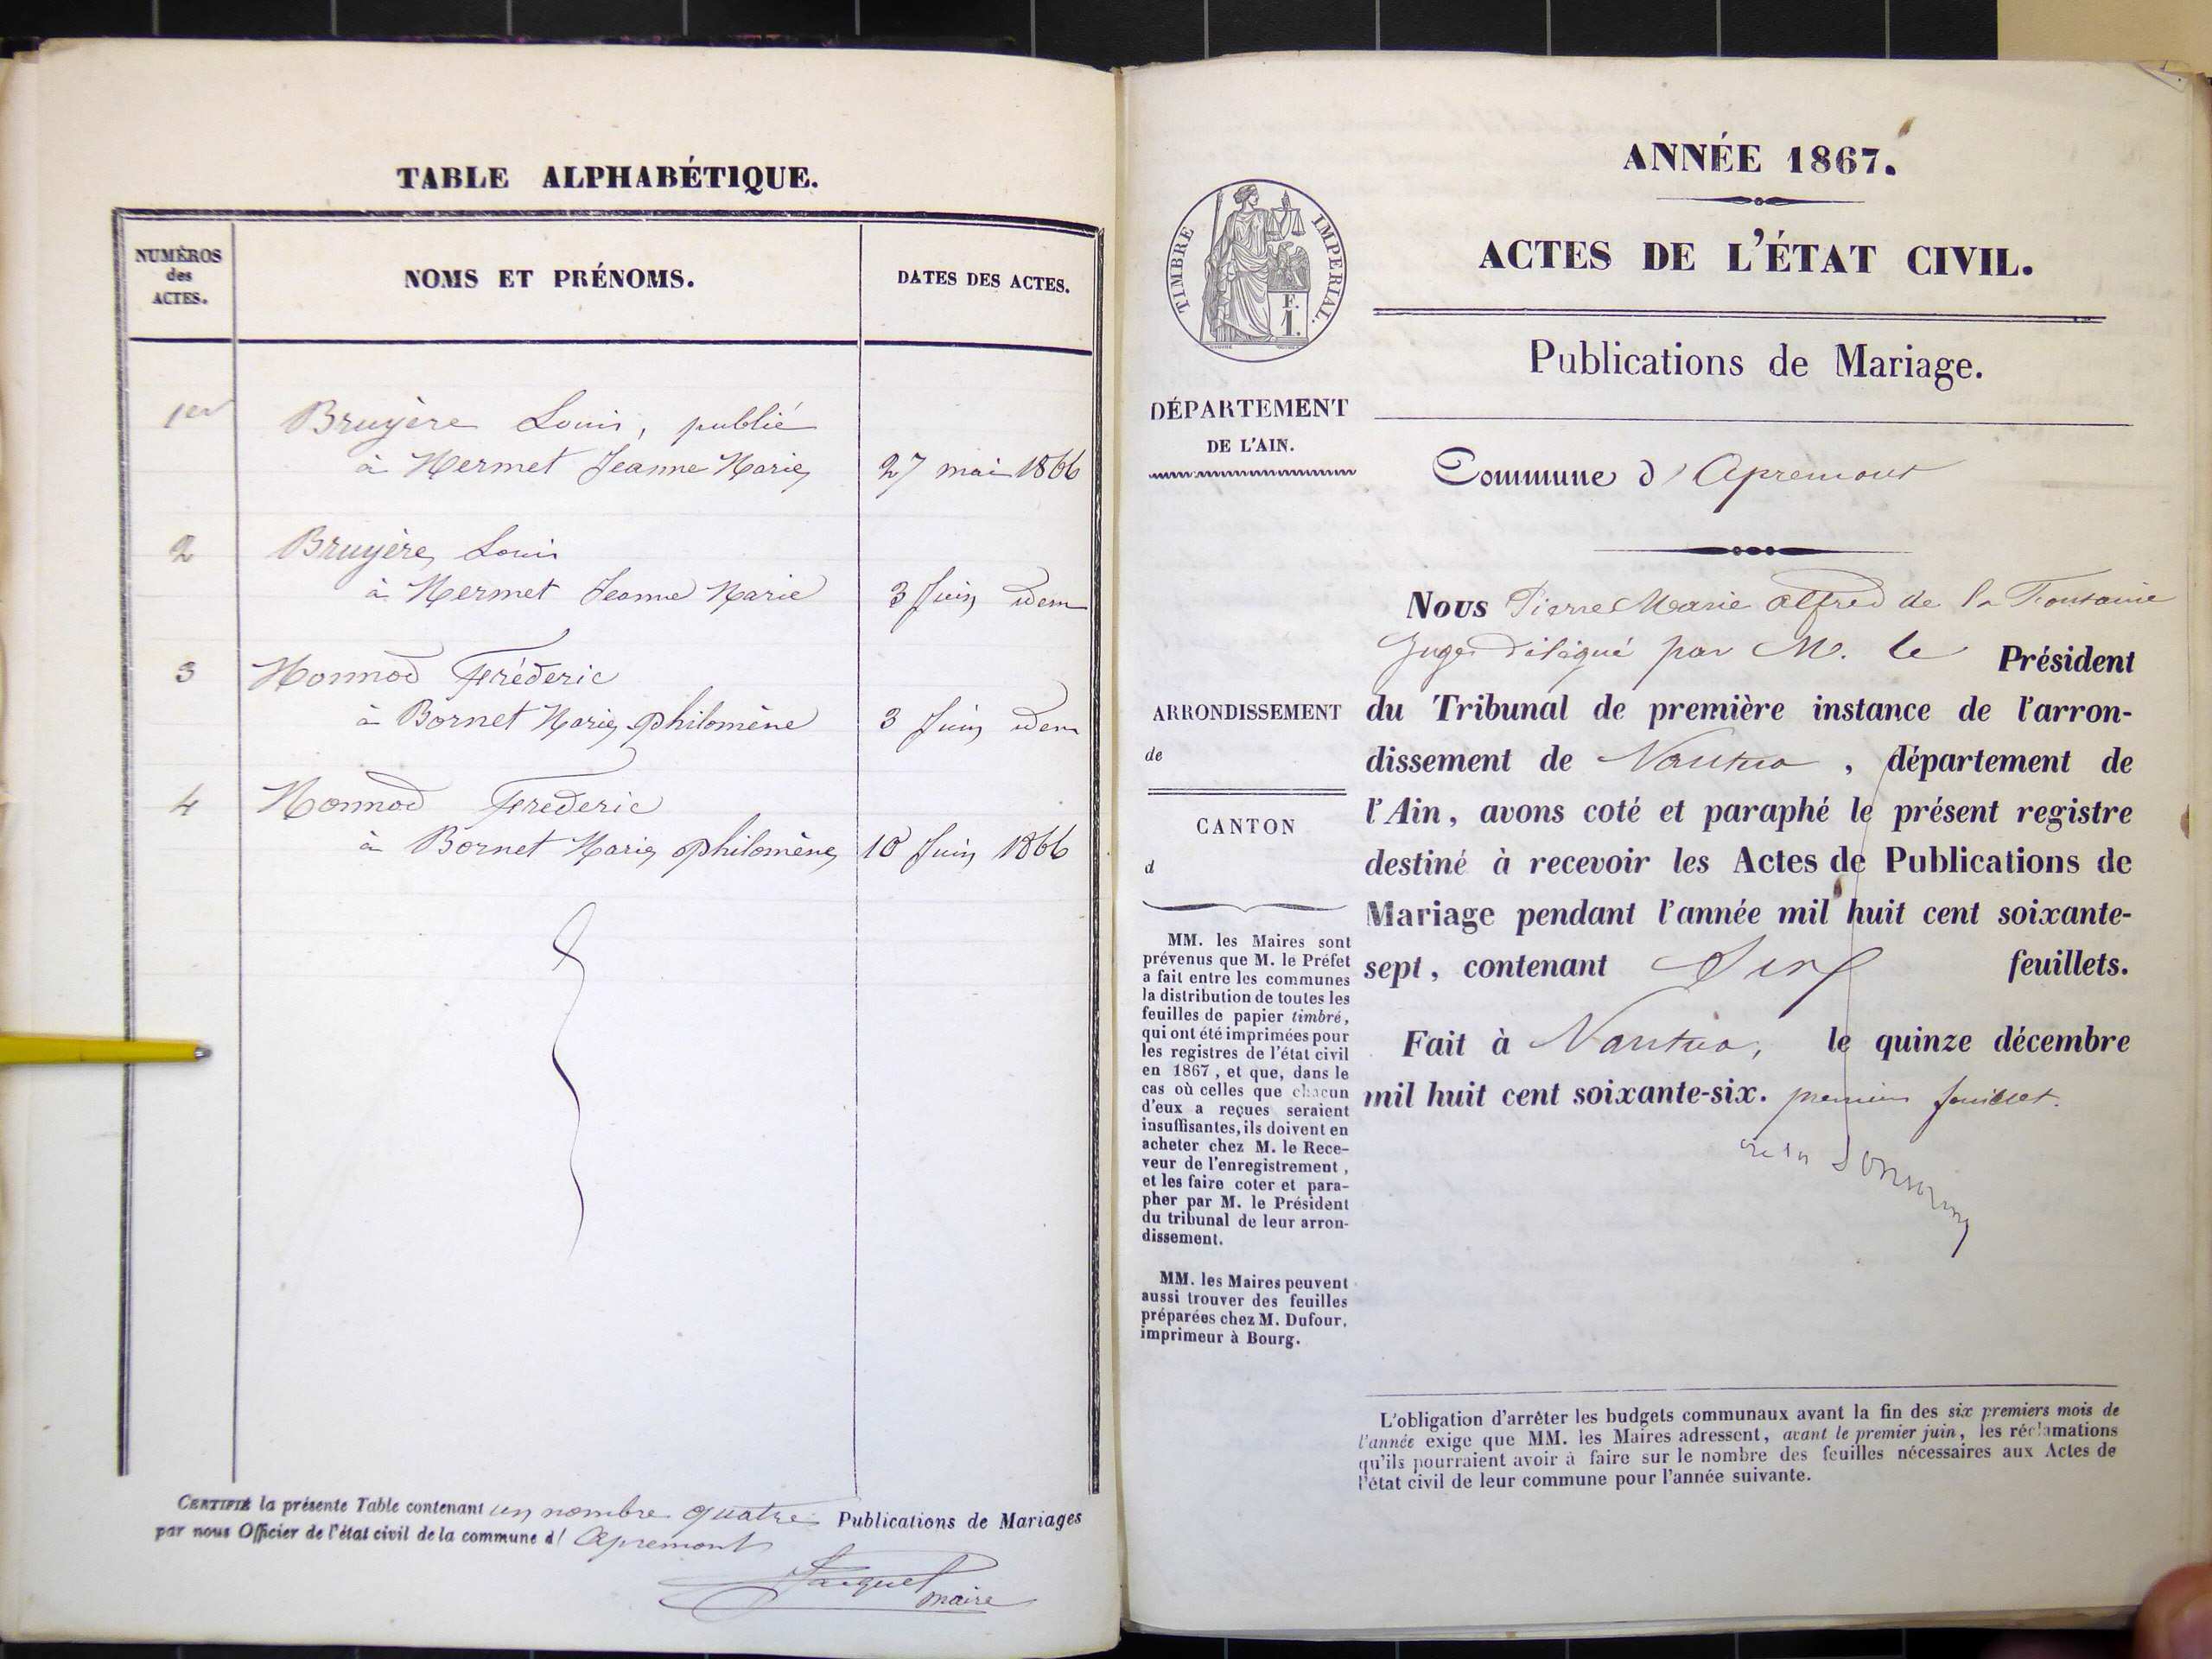 TABLE ALPHABÉTIQUE.
NUMÉROS
des
ACTES.
NOMS ET PRÉNOMS.
DATES DES ACTES.
1er
Bruyère Louis, publié
à Mermet Jeanne Marie
27 mai 1866
2
Bruyère Louis
à Mermet Jeanne Marie
3 Juin idem
3
Monnod Fréderic
à Bornet Marie philomène
3 Juin idem
4
Monnod Frederic
à Bornet Marie philomène
10 Juin 1866
CERTIFIÉ la présente Table contenant un nombre quatre Publications de Mariages
par nous Officier de l'état civil de la commune d' Apremont
maire
ANNÉE 1867.
TIMBRE IMPERIAL.
F.
1.
ACTES DE L'ÉTAT CIVIL.
Publications de Mariage.
DÉPARTEMENT
DE L'AIN.
Commune d' Apremont
Nous Pierre Marie Alfred de la Fontaine
Juge délégué par M. le Président
du Tribunal de première instance de l'arron-
dissement de Nantua, département de
l'Ain, avons coté et paraphé le présent registre
destiné à recevoir les Actes de Publications de
Mariage pendant l'année mil huit cent soixante-
sept, contenant feuillets.
Fait à Nantua, le quinze décembre
mil huit cent soixante-six. premier feuillet.
ARRONDISSEMENT
de
CANTON
d
MM. les Maires sont
prévenus que M. le Préfet
a fait entre les communes
la distribution de toutes les
feuilles de papier timbré,
qui ont été imprimées pour
les registres de l'état civil
en 1867, et que, dans le
cas où celles que chacun
d'eux a reçues seraient
insuffisantes, ils doivent en
acheter chez M. le Rece-
veur de l'enregistrement,
et les faire coter et para-
pher par M. le Président
du tribunal de leur arron-
dissement.
MM. les Maires peuvent
aussi trouver des feuilles
préparées chez M. Dufour,
imprimeur à Bourg.
L'obligation d'arrêter les budgets communaux avant la fin des six premiers mois de
l'année exige que MM. les Maires adressent, avant le premier juin, les réclamations
qu'ils pourraient avoir à faire sur le nombre des feuilles nécessaires aux Actes de
l'état civil de leur commune pour l'année suivante.